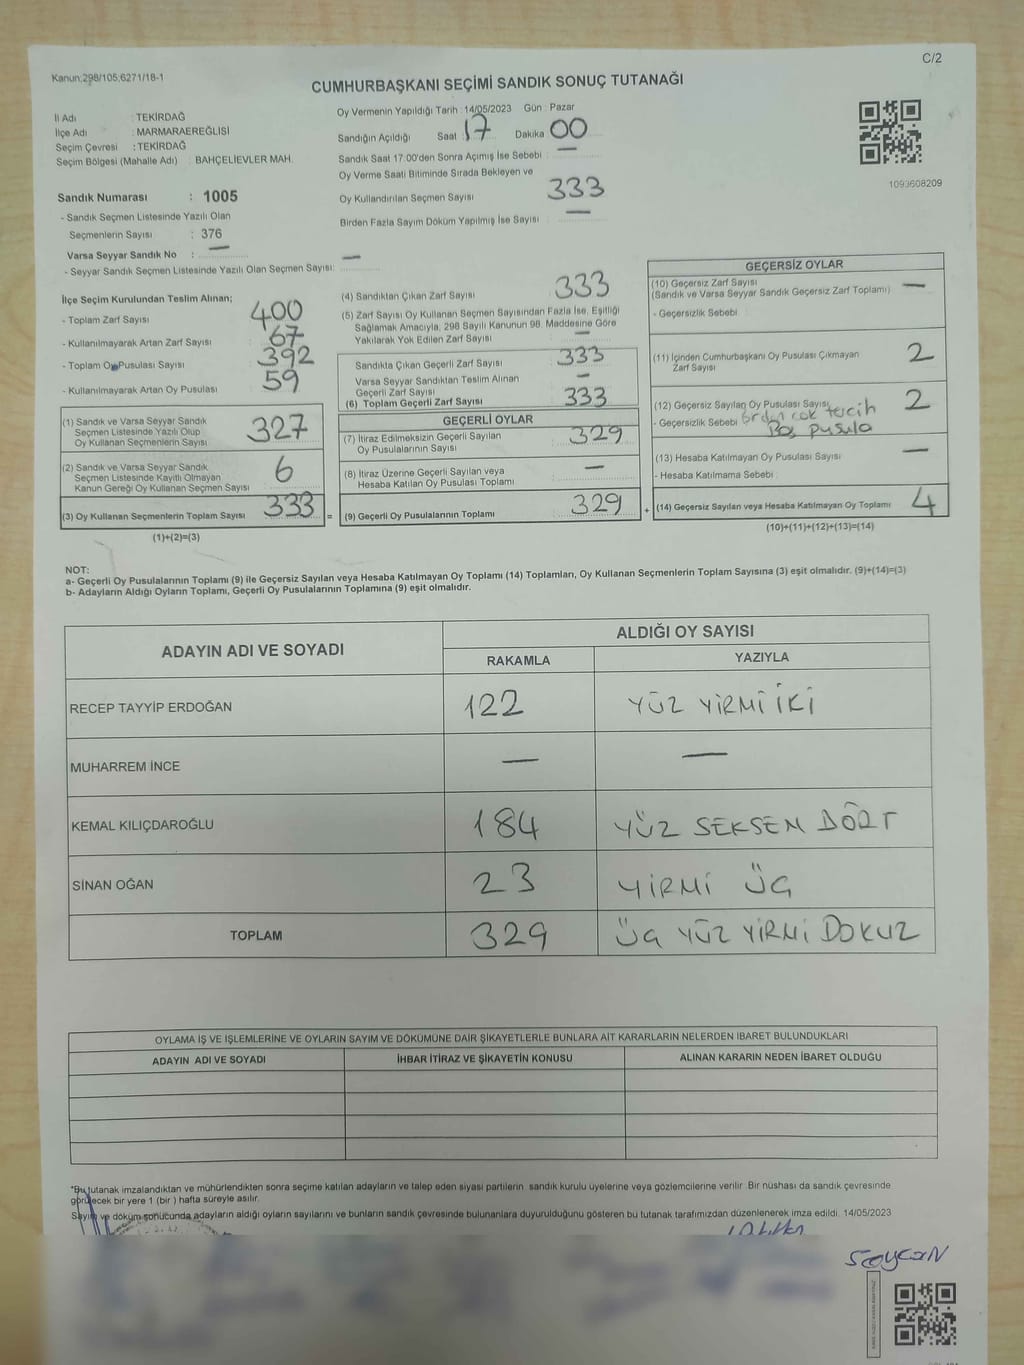 C/2
Kanun;298/105;6271/18-1
CUMHURBAŞKANI SEÇİMİ SANDIK SONUÇ TUTANAĞI
İl Adı : TEKİRDAĞ
İlçe Adı : MARMARAEREĞLİSİ
Seçim Çevresi : TEKİRDAĞ
Seçim Bölgesi (Mahalle Adı) : BAHÇELİEVLER MAH.
Sandık Numarası : 1005
- Sandık Seçmen Listesinde Yazılı Olan
Seçmenlerin Sayısı : 376
Varsa Seyyar Sandık No : —
- Seyyar Sandık Seçmen Listesinde Yazılı Olan Seçmen Sayısı: —
Oy Vermenin Yapıldığı Tarih :14/05/2023 Gün : Pazar
Sandığın Açıldığı Saat 17 Dakika 00
Sandık Saat 17:00'den Sonra Açımış İse Sebebi : —
Oy Verme Saati Bitiminde Sırada Bekleyen ve
Oy Kullandırılan Seçmen Sayısı 333
Birden Fazla Sayım Döküm Yapılmış İse Sayısı : —
1093608209
İlçe Seçim Kurulundan Teslim Alınan;
- Toplam Zarf Sayısı 400
- Kullanılmayarak Artan Zarf Sayısı 67
- Toplam Oy Pusulası Sayısı 392
- Kullanılmayarak Artan Oy Pusulası 59
(1) Sandık ve Varsa Seyyar Sandık
Seçmen Listesinde Yazılı Olup
Oy Kullanan Seçmenlerin Sayısı 327
(2) Sandık ve Varsa Seyyar Sandık
Seçmen Listesinde Kayıtlı Olmayan
Kanun Gereği Oy Kullanan Seçmen Sayısı 6
(3) Oy Kullanan Seçmenlerin Toplam Sayısı 333 =
(1)+(2)=(3)
(4) Sandıktan Çıkan Zarf Sayısı 333
(5) Zarf Sayısı Oy Kullanan Seçmen Sayısından Fazla İse, Eşitliği
Sağlamak Amacıyla, 298 Sayılı Kanunun 98. Maddesine Göre
Yakılarak Yok Edilen Zarf Sayısı —
Sandıkta Çıkan Geçerli Zarf Sayısı 333
Varsa Seyyar Sandıktan Teslim Alınan
Geçerli Zarf Sayısı —
(6) Toplam Geçerli Zarf Sayısı 333
GEÇERLİ OYLAR
(7) İtiraz Edilmeksizin Geçerli Sayılan
Oy Pusulalarının Sayısı 329
(8) İtiraz Üzerine Geçerli Sayılan veya
Hesaba Katılan Oy Pusulası Toplamı —
(9) Geçerli Oy Pusulalarının Toplamı 329 +
GEÇERSİZ OYLAR
(10) Geçersiz Zarf Sayısı
(Sandık ve Varsa Seyyar Sandık Geçersiz Zarf Toplamı) —
- Geçersizlik Sebebi :
(11) İçinden Cumhurbaşkanı Oy Pusulası Çıkmayan
Zarf Sayısı 2
(12) Geçersiz Sayılan Oy Pusulası Sayısı 2
- Geçersizlik Sebebi : çok tercih
Boş pusula
(13) Hesaba Katılmayan Oy Pusulası Sayısı —
- Hesaba Katılmama Sebebi :
(14) Geçersiz Sayılan veya Hesaba Katılmayan Oy Toplamı 4
(10)+(11)+(12)+(13)=(14)
NOT:
a- Geçerli Oy Pusulalarının Toplamı (9) ile Geçersiz Sayılan veya Hesaba Katılmayan Oy Toplamı (14) Toplamları, Oy Kullanan Seçmenlerin Toplam Sayısına (3) eşit olmalıdır. (9)+(14)=(3)
b- Adayların Aldığı Oyların Toplamı, Geçerli Oy Pusulalarının Toplamına (9) eşit olmalıdır.
ADAYIN ADI VE SOYADI
ALDIĞI OY SAYISI
RAKAMLA YAZIYLA
RECEP TAYYİP ERDOĞAN 122 YÜZ YİRMİ İKİ
MUHARREM İNCE — —
KEMAL KILIÇDAROĞLU 184 YÜZ SEKSEN DÖRT
SİNAN OĞAN 23 YİRMİ ÜÇ
TOPLAM 329 ÜÇ YÜZ YİRMİ DOKUZ
OYLAMA İŞ VE İŞLEMLERİNE VE OYLARIN SAYIM VE DÖKÜMÜNE DAİR ŞİKAYETLERLE BUNLARA AİT KARARLARIN NELERDEN İBARET BULUNDUKLARI
ADAYIN ADI VE SOYADI İHBAR İTİRAZ VE ŞİKAYETİN KONUSU ALINAN KARARIN NEDEN İBARET OLDUĞU
*Bu tutanak imzalandıktan ve mühürlendikten sonra seçime katılan adayların ve talep eden siyasi partilerin sandık kurulu üyelerine veya gözlemcilerine verilir. Bir nüshası da sandık çevresinde
görülecek bir yere 1 (bir ) hafta süreyle asılır.
Sayım ve döküm sonucunda adayların aldığı oyların sayılarını ve bunların sandık çevresinde bulunanlara duyurulduğunu gösteren bu tutanak tarafımızdan düzenlenerek imza edildi. 14/05/2023